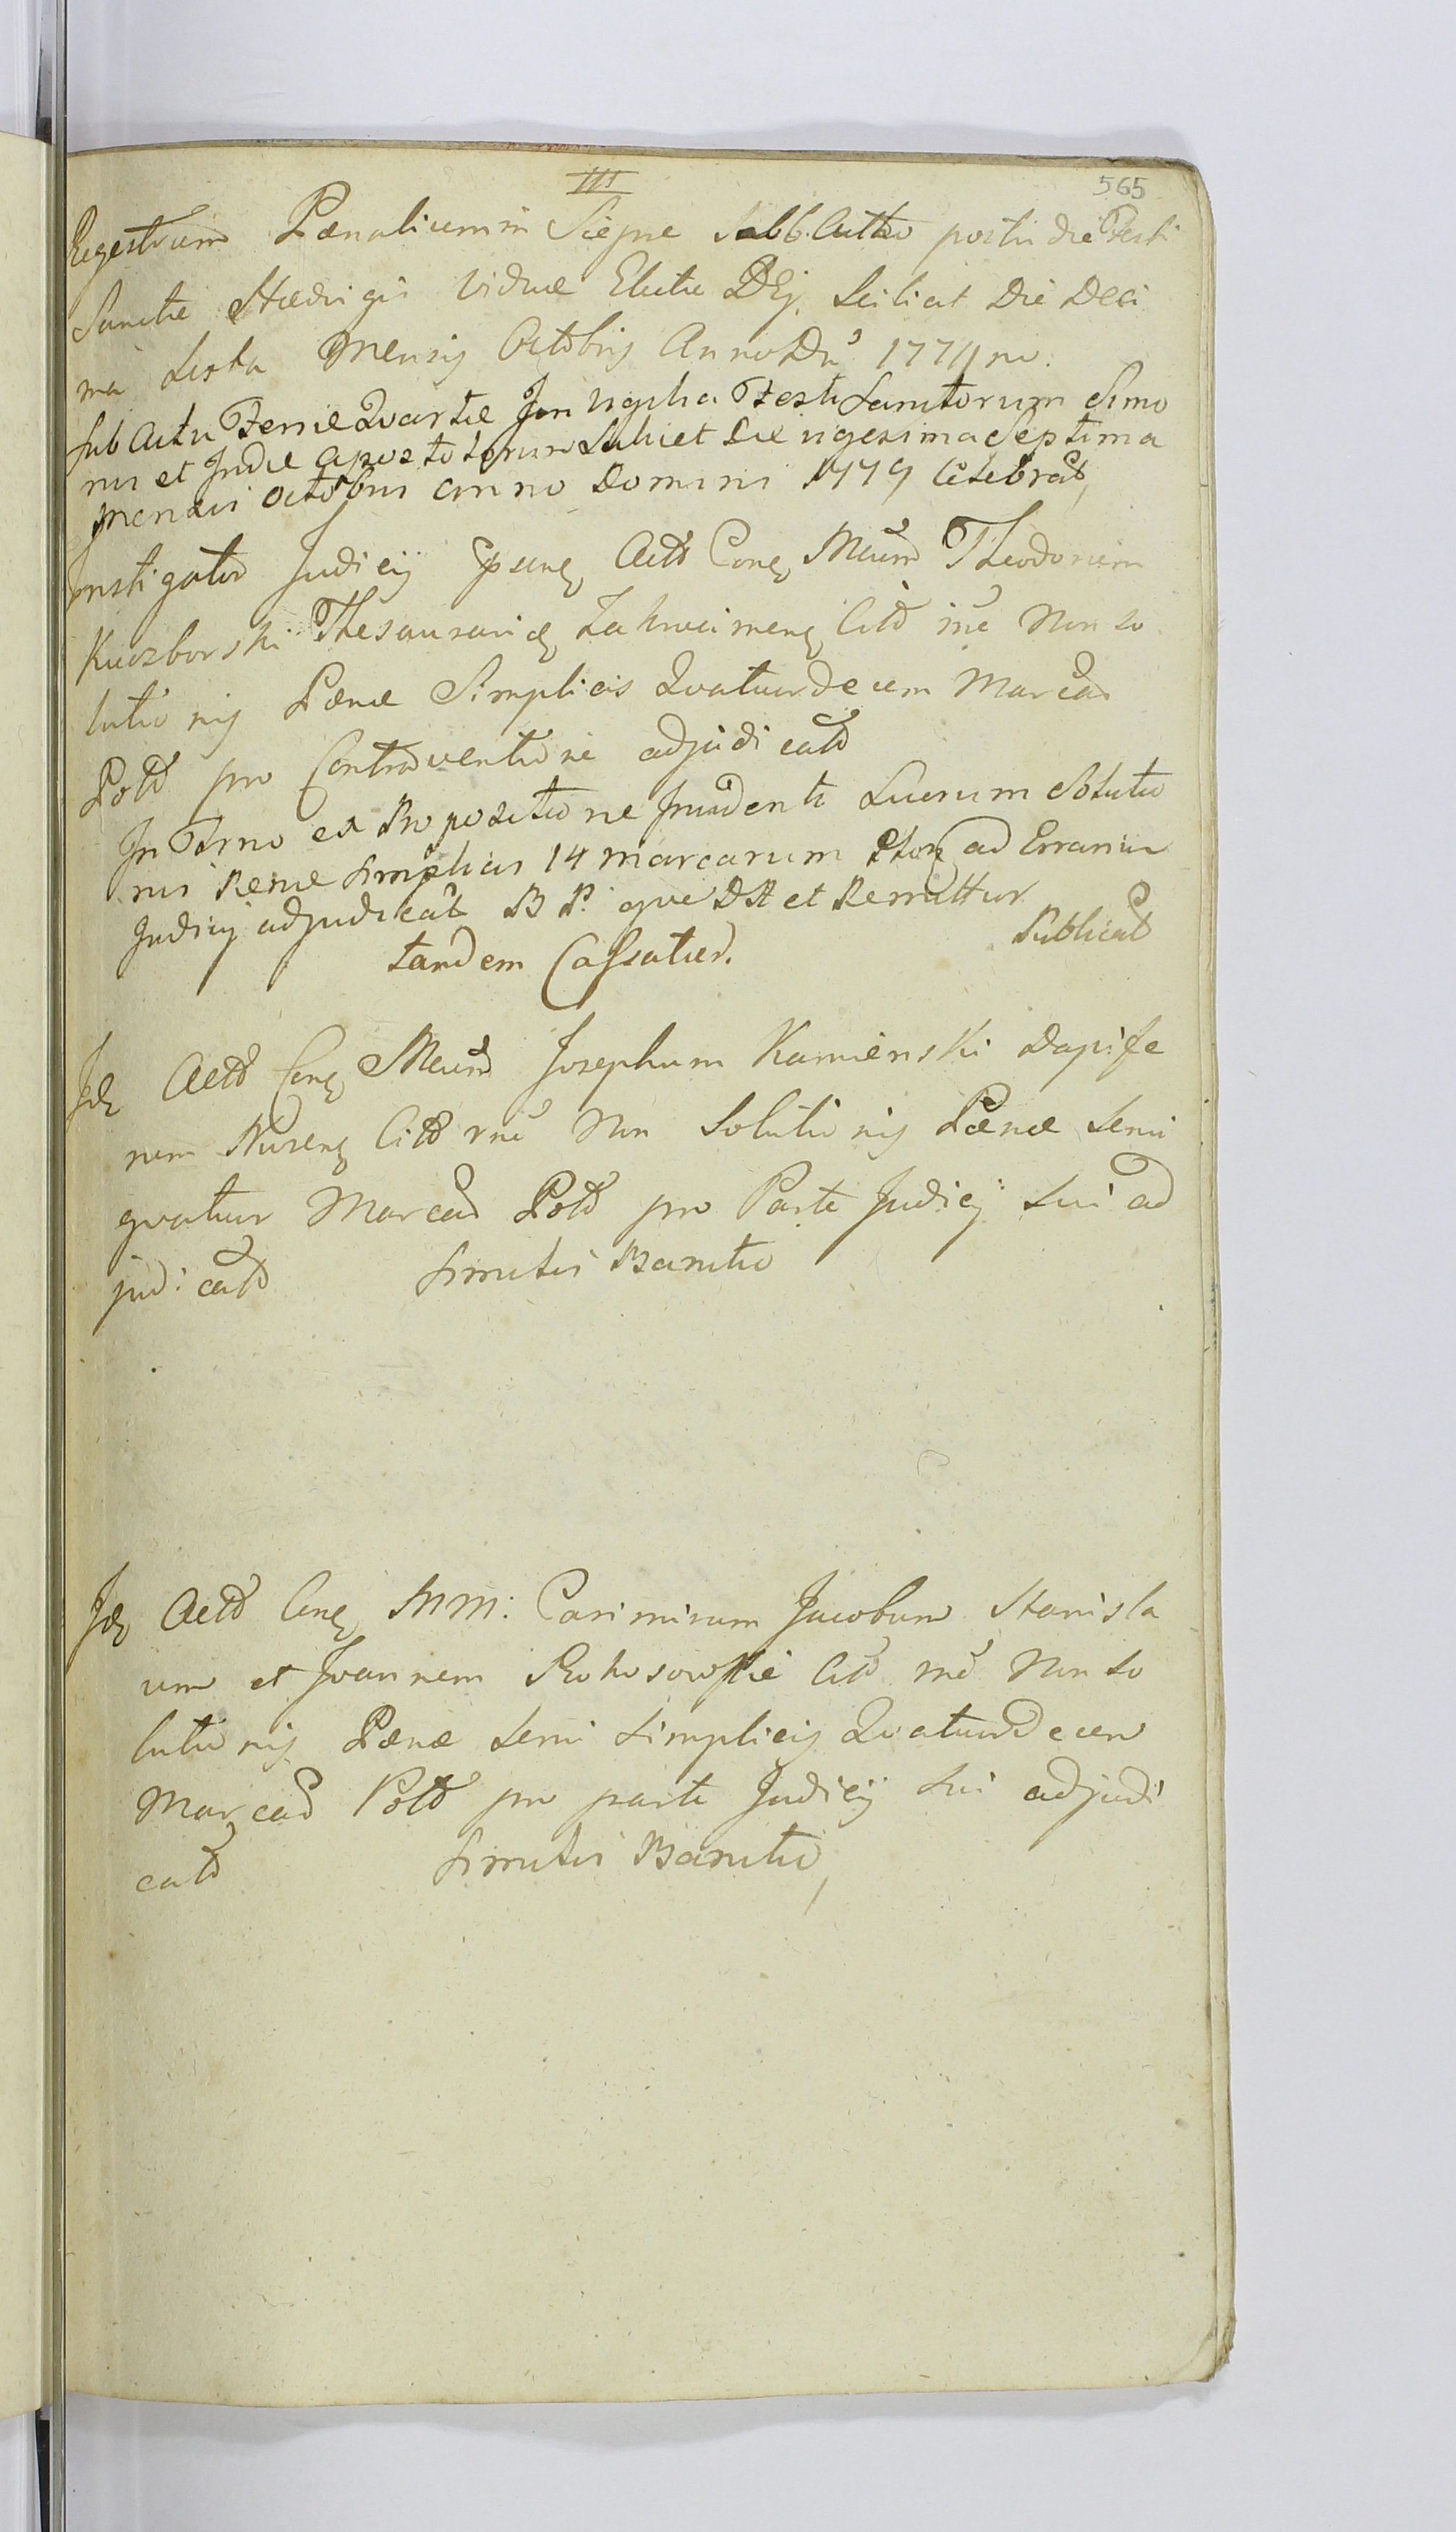 III
565
Regestrum Pænalium in Siepne Subb. Actto postri die Festi
Sanctæ Hædvigis Viduæ Electæ DEj. Scilicet Die Deci
ma Sexta Mensis Octobris Anno Dnî 1774
Sub Actu Feriæ Quartæ In vigilia Festi Sanctorum Simo
nis et Judæ Apostolorum Scilicet Die vigesima Septima
mensis octobris anno Domini 1779 Celebrat
Instigator Judicij Actt Conq Mcum Theodorum
Kuczborski Thesaurariq Zakroczimenq Citt Non so
lutionis Pænæ Simplicis Quatuordecem Marcar
Poltt pro Contraventione adjudicatt
In Trno ex Propositione Luerum Solutio
nis Penæ Simplicis 14 marcarum ad Errarium
Judicij adjudicat que et Remittitur
tandem Cassatur.
Publicat
Jdq Actt Conq Mcum Josephum Kamienski Dapife
rum Nurenq Citt rne Non Solutionis Pænæ Semi
quatuor Marcar Poltt pro Parte Judicij Sui ad
judicatt Similis Banitio
Jdq Actt Conq MM: Casimirum Jacobum Stanisla
um et Joannem Rokosowskie Citt rne Non so
lutionis Pænæ Semi Simplicis Quatuordecem
Marcar Poltt pro parte Judicij Sui adjudi
catt Similis Banitio